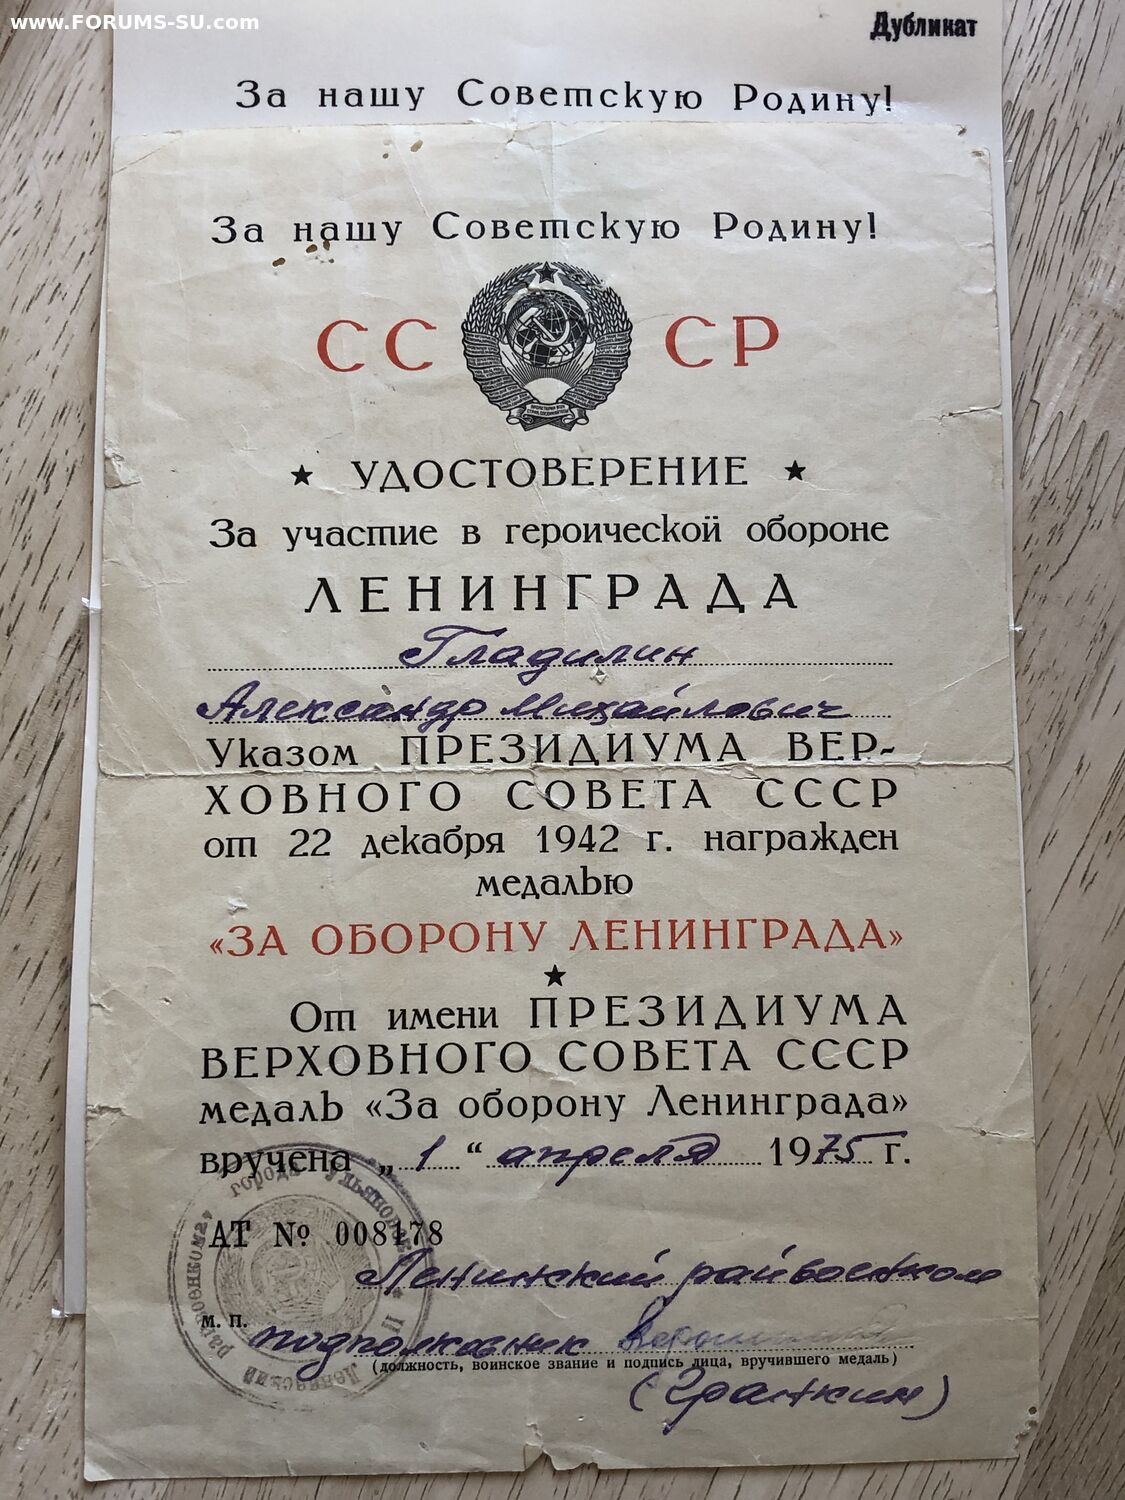 www.FORUMS-SU.com
Дубликат
За нашу Советскую Родину!
За нашу Советскую Родину!
СС СР
★ УДОСТОВЕРЕНИЕ ★
За участие в героической обороне
ЛЕНИНГРАДА
Гладилин
Александр Михайлович
Указом ПРЕЗИДИУМА ВЕР-
ХОВНОГО СОВЕТА СССР
от 22 декабря 1942 г. награжден
медалью
«ЗА ОБОРОНУ ЛЕНИНГРАДА»
★
От имени ПРЕЗИДИУМА
ВЕРХОВНОГО СОВЕТА СССР
медаль «За оборону Ленинграда»
вручена „1“ апреля 1975 г.
АТ № 008178
Ленинский райвоенком
м. п.
подполковник
(должность, воинское звание и подпись лица, вручившего медаль)
(Гранкин)
Ленинский райвоенкомат города Ульяновска